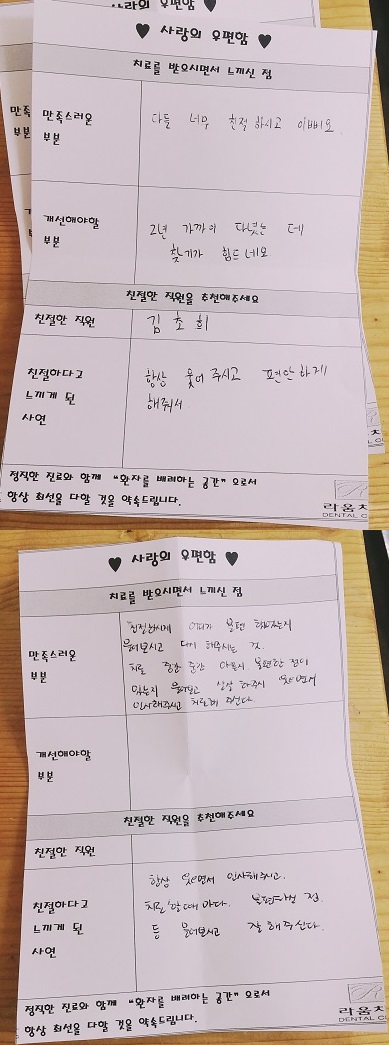 사랑의 우편함
♥ 사랑의 우편함 ♥
치료를 받으시면서 느끼신 점
만족스러운
부분
만족스러운
부분
다들 너무 친절하시고 이뻐요.
개선해야할
부분
2년 가까이 다녔는데
찾기가 힘드네요
친절한 직원을 추천해주세요
친절한 직원
김초희
친절하다고
느끼게 된
사연
항상 웃어 주시고 편안하게
해줘서
정직한 진료와 함께 "환자를 배려하는 공간" 으로서
항상 최선을 다할 것을 약속드립니다.
라움치
DENTAL C
♥ 사랑의 우편함 ♥
치료를 받으시면서 느끼신 점
만족스러운
부분
친절하시게 어디가 불편한지
물어보시고 해주시는 것.
치료 중간 중간 아프거나 불편한 점이
있는지 물어보고 항상 웃으면서
인사해주시고 치료해 주신다.
개선해야할
부분
친절한 직원을 추천해주세요
친절한 직원
친절하다고
느끼게 된
사연
항상 웃으면서 인사해주시고.
치료 할때마다. 불편한 점.
등 물어보시고 잘 해주신다.
정직한 진료와 함께 "환자를 배려하는 공간" 으로서
항상 최선을 다할 것을 약속드립니다.
라움치
DENTAL CL